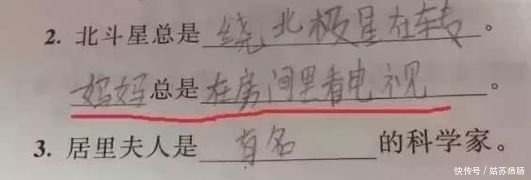 2. 北斗星总是绕北极星在转。
妈妈总是在房间里看电视。
3. 居里夫人是有名的科学家。
快传号/姑苏痛肠